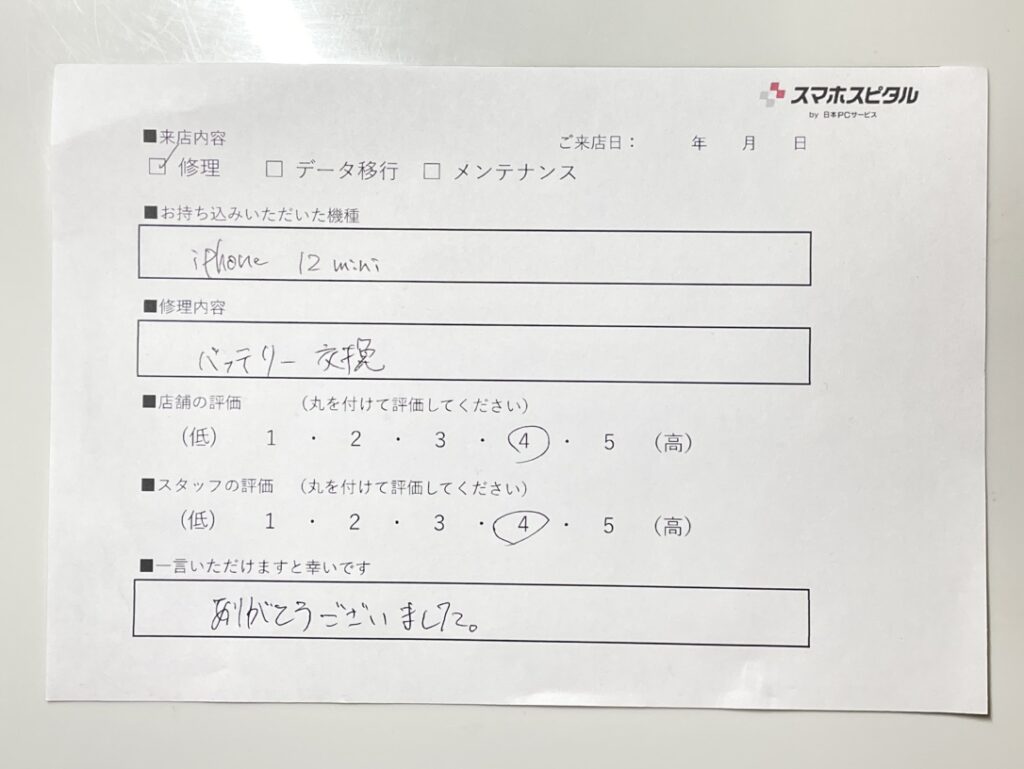 スマホスピタル
by 日本PCサービス
■来店内容
ご来店日： 年 月 日
☑ 修理 □ データ移行 □ メンテナンス
■お持ち込みいただいた機種
iphone 12 mini
■修理内容
バッテリー 交換
■店舗の評価 （丸を付けて評価してください）
（低） 1 ・ 2 ・ 3 ・ 4 ・ 5 （高）
■スタッフの評価 （丸を付けて評価してください）
（低） 1 ・ 2 ・ 3 ・ 4 ・ 5 （高）
■一言いただけますと幸いです
ありがとうございました。